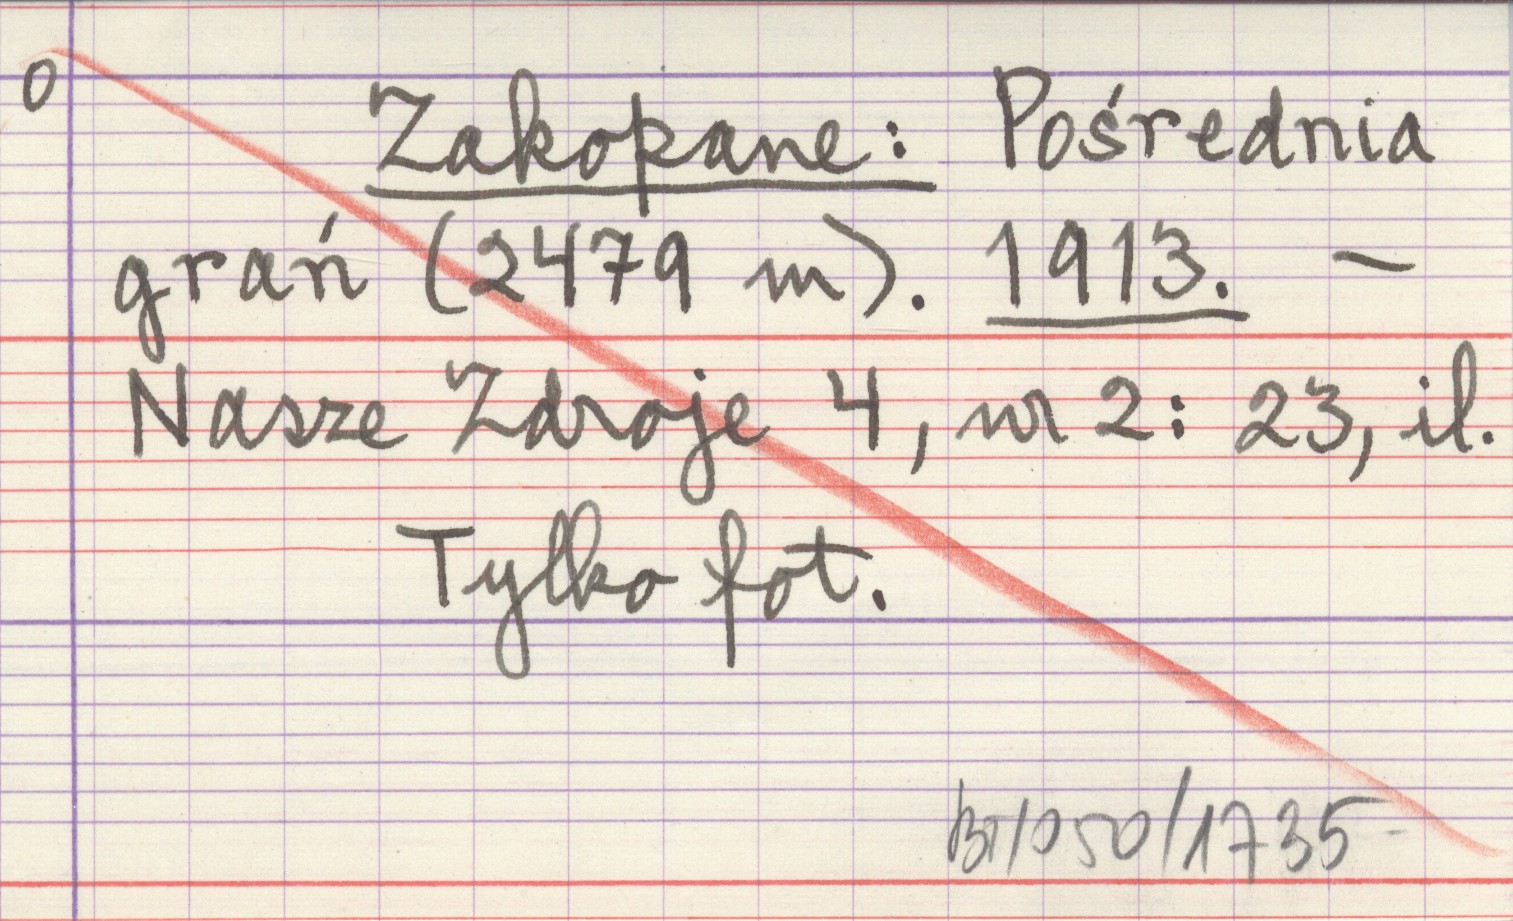 0
Zakopane: Pośrednia
grań (2479 m). 1913. –
Nasze Zdroje 4, nr 2: 23, il.
Tylko fot.
BT/050/1735